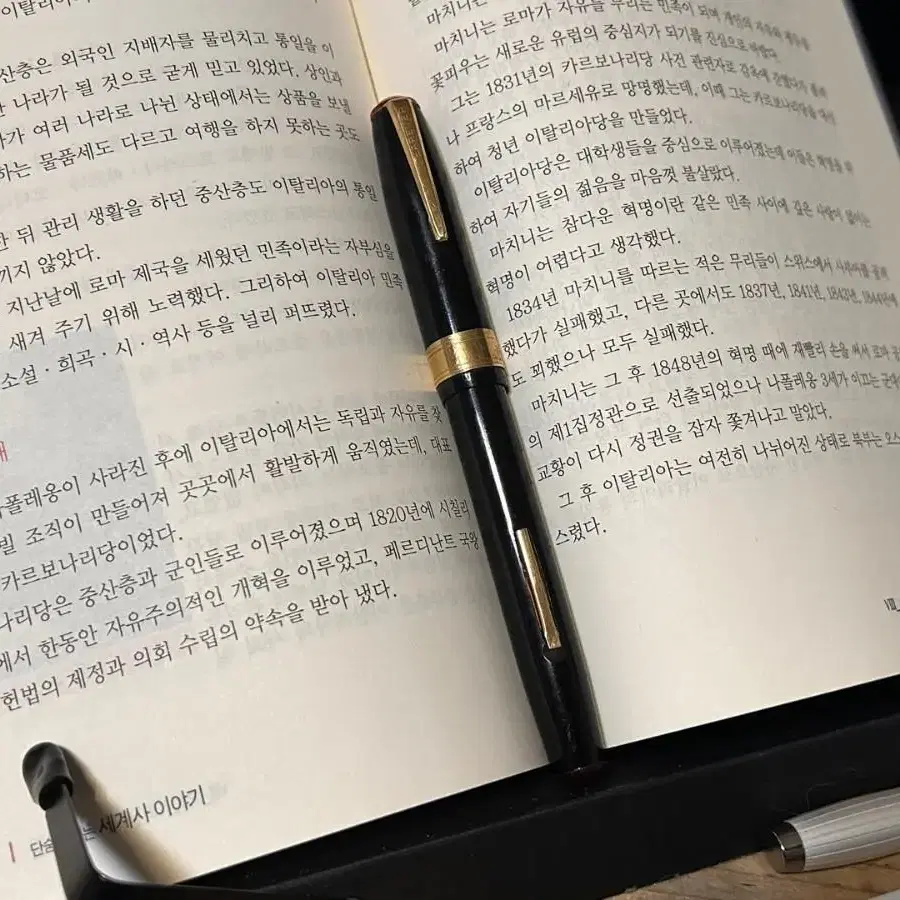 이탈리아
산층은 외국인 지배자를 물리치고 통일을 이
나라가 될 것으로 굳게 믿고 있었다. 상인과
가 여러 나라로 나뉜 상태에서는 상품을 보낼
하는 물품세도 다르고 여행을 하지 못하는 곳도
뒤 관리 생활을 하던 중산층도 이탈리아의 통일
끼지 않았다.
지난날에 로마 제국을 세웠던 민족이라는 자부심을
새겨 주기 위해 노력했다. 그리하여 이탈리아 민족
소설·희곡·시·역사 등을 널리 퍼뜨렸다.
나폴레옹이 사라진 후에 이탈리아에서는 독립과 자유를 찾
빌 조직이 만들어져 곳곳에서 활발하게 움직였는데, 대표
카르보나리당이었다.
나리당은 중산층과 군인들로 이루어졌으며 1820년에 시칠리
에서 한동안 자유주의적인 개혁을 이루었고, 페르디난트 국왕
헌법의 제정과 의회 수립의 약속을 받아 냈다.
단숨 는 세계사 이야기
마치니는 로마가 자유를 누리는 민족이 되며 개인의 자유와
꽃피우는 새로운 유럽의 중심지가 되기를 진심으로 바랐다.
그는 1831년의 카르보나리당 사건 관련자로 감옥에 갇혔다가 풀려
나 프랑스의 마르세유로 망명했는데, 이때 그는 카르보나리당을 떠나
하여 청년 이탈리아당을 만들었다.
이탈리아당은 대학생들을 중심으로 이루어졌는데 이들은 혁명을 위
하여 자기들의 젊음을 마음껏 불살랐다.
마치니는 참다운 혁명이란 같은 민족 사이에 깊은 사랑이 없이는
혁명이 어렵다고 생각했다.
1834년 마치니를 따르는 적은 무리들이 스위스에서 사부아를
했다가 실패했고, 다른 곳에서도 1837년, 1841년, 1843년, 1844년에
도 꾀했으나 모두 실패했다.
마치니는 그 후 1848년의 혁명 때에 재빨리 손을 써서 로마 공
의 제1집정관으로 선출되었으나 나폴레옹 3세가 이끄는 군대
교황이 다시 정권을 잡자 쫓겨나고 말았다.
그 후 이탈리아는 여전히 나뉘어진 상태로 북부는 오스
스렸다.
VII